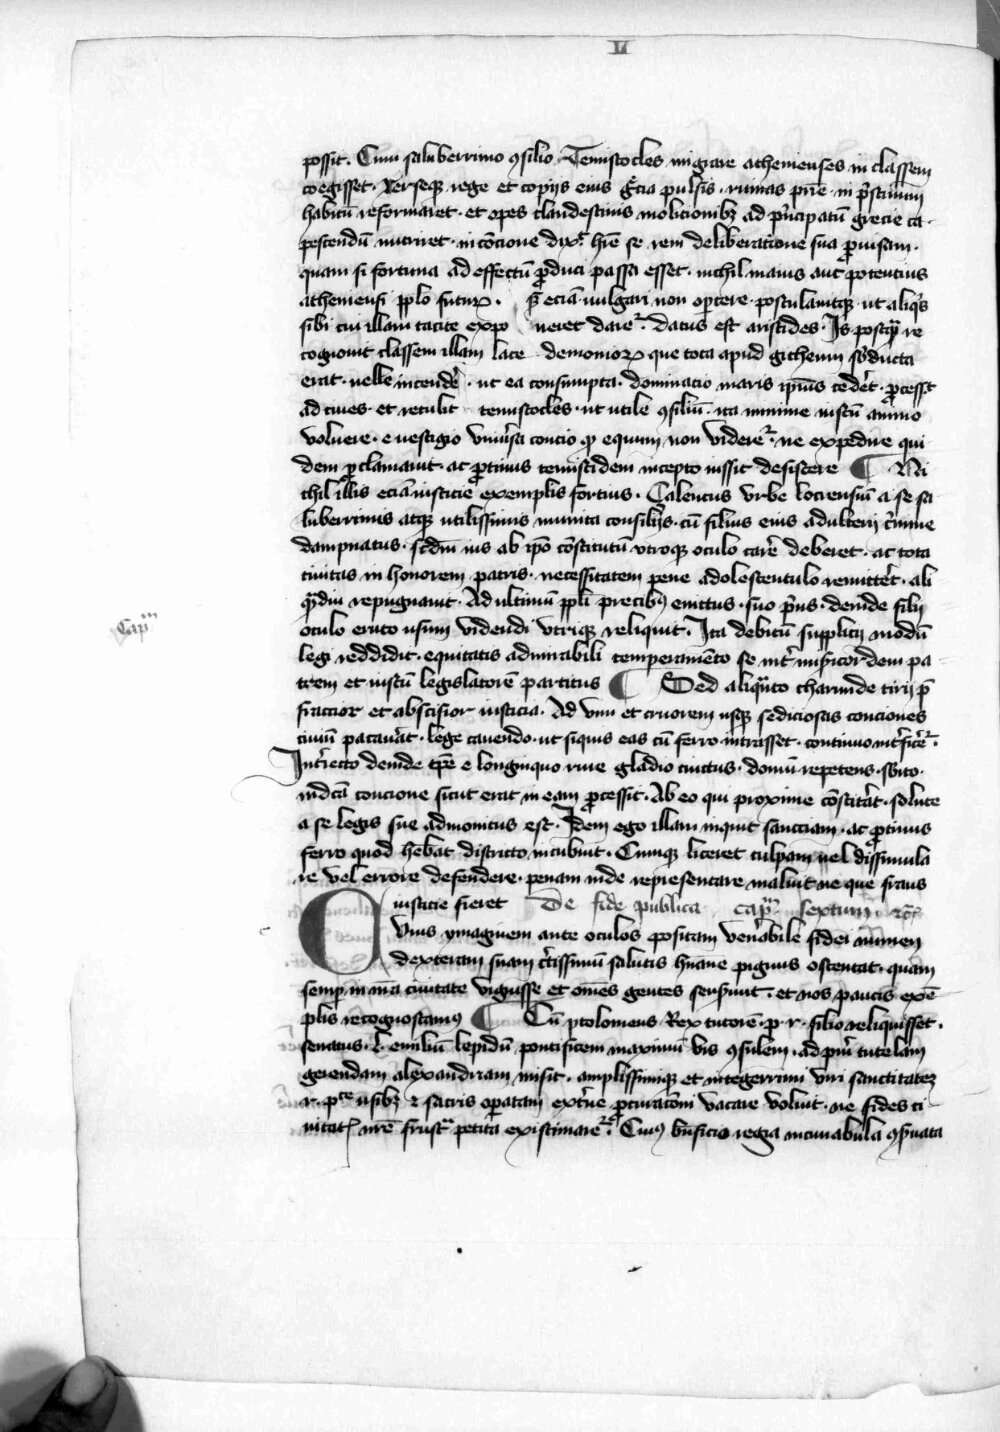 possit. Cum saluberrimo ꝯsilio Temistocles migrare athenienses in classem
coegisset. Xerseqꝫ rege et copijs eius g̃cia pulsis. ruinas pr̄ie in p̄stinum
habitũ reformaret. et opes clandestinis molicionibꝫ ad p̄ncipatũ grecie ca-
pescendũ nutriret. in cõcione dix̃ h̃re se rem deliberatione sua ꝓuisam.
quam si fortuna ad effectũ ꝓduci passa esset. nichil maius aut potentius
atheniensi pplo futuꝝ. sꝫ eciã uulgari non oportere. postulauitqꝫ ut aliq̃s
sibi cui illam tacite expo neret dareᷣ. datus est aristides. Is postq̃ re
cognouit classem illam lace demonioꝝ que tota apud githeum sb̃ducta
erat. uelle incendẽ. ut ea consumpta. dominacio maris ip̃is cedẽt. ꝓcessit
ad ciues. et retulit temistocles. ut utile ꝯsiliũ. ita minime iustũ animo
voluere. e uestigio vniũsa concio qꝫ equum non videreᷣ. ne expedire qui
dem ꝓclamauit. ac ꝓtinus temistidem incepto iussit desistere ¶ Ni
chil illis eciã iusticie exemplis fortius. Calencus vrbe locrensiũ a se sa
luberrimis atqꝫ utilissimis munita consilijs. cũ filius eius adulterij c̃mine
dampnatus. scd̃m ius ab ip̃o cõstitutũ vtroqꝫ oculo carẽ deberet. ac tota
ciuitas in honorem patris. necessitatem pene adolescentulo remittẽt. ali
q̃diu repugnauit. Ad ultimũ ppli precibꝰ euictus. suo p̃us. deinde filij
oculo eruto usum videndi vtriqꝫ reliquit. Ita debitũ supplicij modũ
legi reddidit. equitatis admirabili temperamẽto se int̃ mĩsicordem pa-
trem et iustũ legislatorẽ partitus ¶ Sed aliq̃nto charunde tirij p̃
fraccior et abscisior iusticia. Ad vim et cruorem usqꝫ sediciosas conciones
ciuiũ pacauãt. lege cauendo. ut siquis eas cũ ferro intrasset. continuo int̃ficẽᷣ.
Int̃iecto deinde tp̃e e longinquo rure gladio cinctus. domũ repetens. sb̃ito.
indc̃a concione sicut erat in eam ꝓcessit. Ab eo qui proxime cõstitãt. solute
a se legis sue admonitus est. Idem ego illam inquit sancciam. ac ꝓtinus
ferro quod h̃ebat districto incubuit. Cumqꝫ liceret culpam uel dissimula
re vel errore defendere. penam inde representare maluit ne que fraus
iusticie fieret De fide publica capm̃ sextum. rc̃
Cuius ymaginem ante oculos positam veñabile fidei numen
dexteram suam c̃tissimũ salutis hũane pignus ostentat. quam
semꝑ in nr̃a ciuitate viguisse et om̃es gentes senserunt. et nos paucis exẽ
plis recognoscamꝰ ¶ Cũ ptolomeus Rex tutorẽ. p. r. filio reliquisset.
senatus. l. emiliũ lepidũ pontificem maximũ bis ꝯsulem. ad pũi tutelam
gerendam alexandriam misit. amplissimiqꝫ et integerrimi viri sanctitatẽ
r. p. usibꝫ et sacris opatam ext̃ne ꝓcuracõi vacare voluit. ne fides ci-
uitatꝭ nr̃e frustra petita existimareᷣ. Cuiꝰ bñficio regia incunabula ꝯseruata
Capm